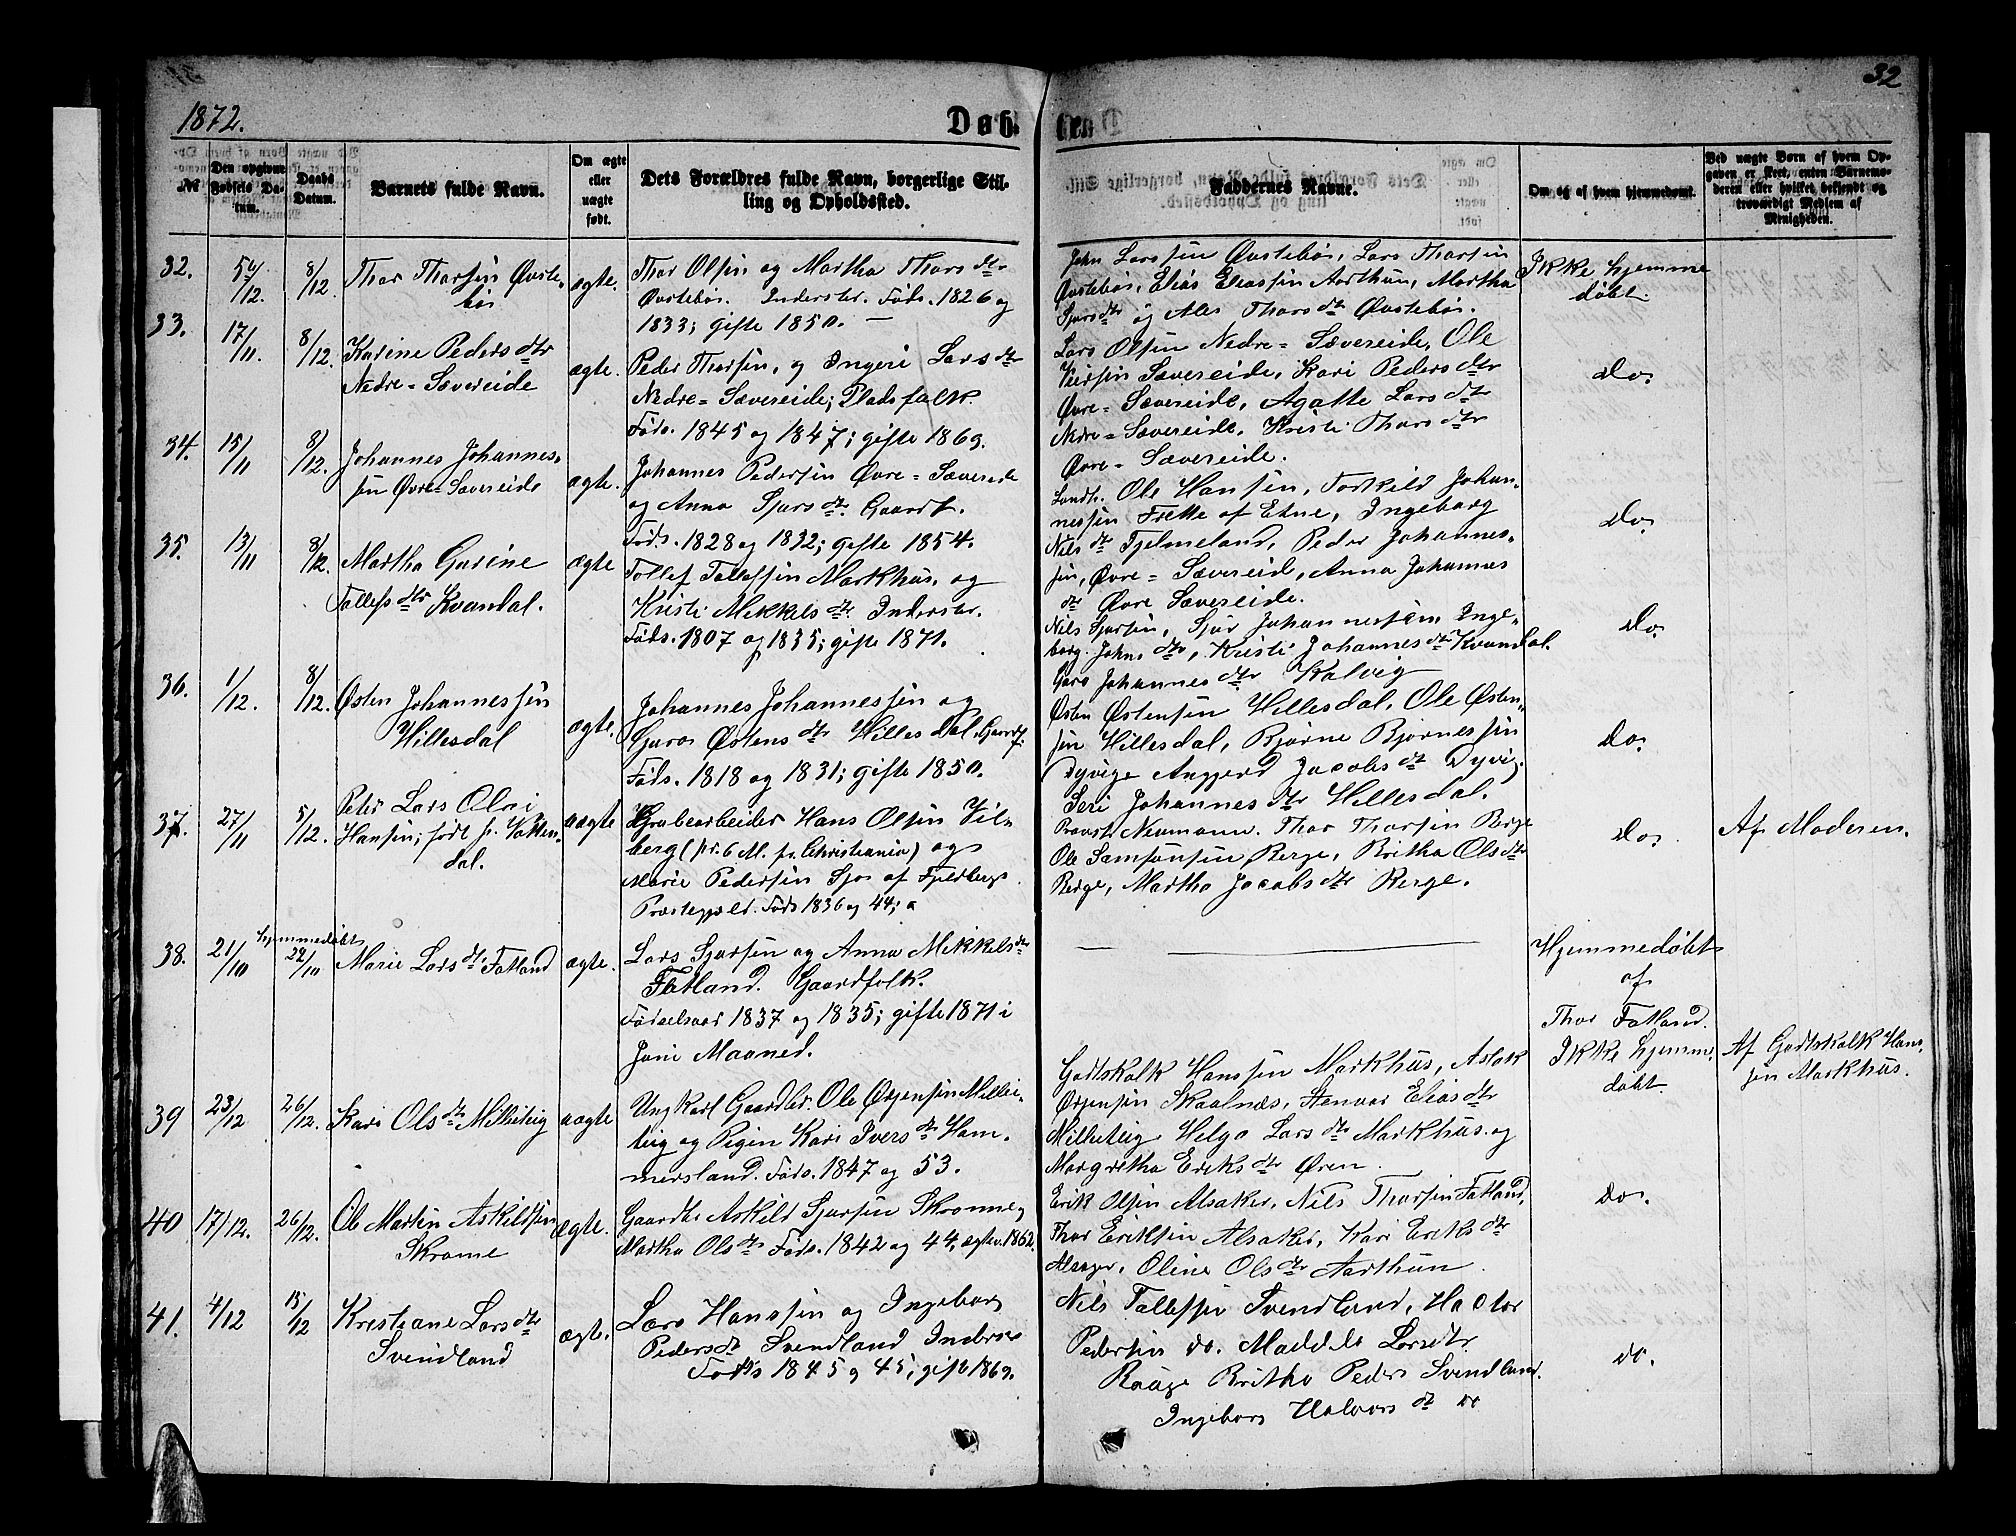 32
1872.
Døbte
№
Den opgivne Fødsels Datum.
Daabs Datum.
Barnets fulde Navn.
Om ægte eller uægte født.
Dets Forældres fulde Navn, borgerlige Stilling og Opholdssted.
Faddernes Navne.
Om og af hvem hjemmedøbt.
Ved uægte Børn af hvem Opgaven er skeet, enten Barnemoderen eller hvilket bekjendt og troværdigt Medlem af Menigheden.
32. /12. 8/12. Thor Thorsen Øvstebøs ægte.
Thor Olsen og Martha Thorsdtr
Øvstebøs. Inderster. Føds. 1826 og
1833; gifte 1850. —
John Larssen Øvstebøs, Lars Thorsen
Øvstebøs, Elias Eliassen Aarthun, Martha
Sjursdtr og Ales Thorsdtr Øvstebøs.
Ikke hjemme
døbt.
33. 17/11. 8/12. Karine Pedersdtr
Nedre-Sævereide ægte.
Peder Thorsen, og Ingeri Larsdtr
Nedre-Sævereide; Pladsfolk.
Føds. 1845 og 1847; gifte 1869.
Lars Olsen Nedre-Sævereide, Ole
Sævereide, Kari Pedersdtr
Øvre-Sævereide, Agatte Larsdtr
Nedre-Sævereide, Kristi Thorsdtr
Øvre-Sævereide.
do.
34. 15/11 8/12. Johannes Johannes-
sen Øvre-Sævereide ægte.
Johannes Pedersen Øvre-Sævereide
og Anna Sjursdtr. Gaardf.
Føds. 1828 og 1832; gifte 1854.
Landh. Ole Hansen, Torkild Johan-
nessen Frette af Etne, Ingeborg
Nilsdtr Tjelmeland, Peder Johannes-
sen, Øvre-Sævereid, Anna Johannes
dtr Øvre Sævereide.
do.
35. 13/11 8/12. Martha Gurine
Tollefsdtr Kvandal. ægte
Tollef Tollefsen Markhus, og
Kristi Mikkelsdtr. Inderster.
Føds. 1807 og 1835; gifte 1871.
Nils Sjursen, Sjur Johannessen, Inge-
borg Johnsdtr, Kristi Johannesdtr Kvandal.
Guro Johannesdtr Kalvig
do.
36. 1/12. 8/12. Østen Johannessen
Hillesdal ægte.
Johannes Johannessen og
Guro Østensdtr Hillesdal, Gaardf.
Føds. 1818 og 1831; gifte 1850.
Østen Østensen Hillesdal, Ole Østen-
sen Hillesdal, Bjørne Bjørnessen
Dyvige Anggerd Jacobsdtr Dyvig.
Seri Johannesdtr Hillesdal.
do.
37. 27/11 5/12. Peter Lars Olai
Hansen; født p. Vatten-
dal. uægte
Grubearbeider Hans Olsen Vil-
berg (for 6 M. fr. Christiania) og
Marie Pedersen Sjo af Fjeldbergs
Præstegjæld. Føds 1836 og 44;
Provst Neumann. Thor Thorsen Berge
Ole Samsonsen Berge, Britha Olsdtr
Berge, Martha Jacobsdtr Berge.
do.
Af Moderen.
38. 21/10 hjemmedøbt 22/10 Marie Larsdtr Fatland ægte.
Lars Sjursen og Anna Mikkelsdtr
Fatland. Gaardfolk.
Fødselsaar 1837 og 1835; gifte 1871 i
Juni Maaned.
Hjemmedøbt
af
Thor Fatland.
39 23/12 26/12. Kari Olsdtr Milleteig uægte
Ungkarl Gaardbr. Ole Ørjensen Millei-
teig og Pigen Kari Iversdtr Ham-
mersland. Føds. 1847 og 53.
Godtskalk Hanssen Markhus, Aslak
Ørjensen Skaalnæs, Stenvor Eliasdtr
Milleteig Helga Larsdtr Markhus og
Margretha Eriksdtr Øren.
Ikke hjemme-
døbt
Af Godtskalk Hans-
sen Markhus.
40 17/12. 26/12. Ole Martin Askildsen
Skrome ægte.
Gaardbr. Askild Sjursen Skromme,
Martha Olsdtr Føds. 1842 og 44, ægtev. 1862.
Erik Olsen Alsaker, Nils Thorsen Fatland,
Thor Eriksen Alsaker, Kari Eriksdtr
Alsager, Oline Olsdtr Aarthun.
do.
41. 4/12 15/12 Kristiane Larsdtr
Svendland ægte.
Lars Hanssen og Ingeborg
Pedersdtr Svendland Inderster
Føds 1845 og 45; gift 1869.
Nils Tollefsen Svendland, Hactor
Pedersen do. Madde Larsdtr
Rauge Britha Peders Svendland.
Ingebors Halvorsdtr do
do.